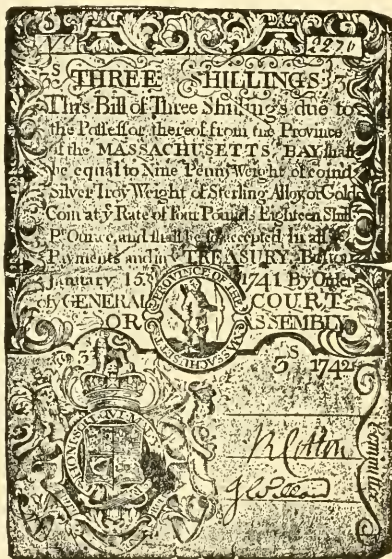 3271
3S THREE SHILLINGS 3S
This Bill of Three Shillings due to
the Possessor thereof from the Province
of the MASSACHUSETTS BAY shall
be equal to Nine Penny Weight of coind
Silver Troy Weight of Sterling Alloy or Gold
Coin at ye Rate of Four Pounds Eighteen Shill
Pr Ounce, and shall be so accepted in all
Payments and in ye TREASURY. Boston
January 15. 1741 By Order
of ye GENERAL COURT
OR ASSEMBLY
PROVINCE OF THE MASSACHUSETTS
3S 1742
HONI SOIT QUI MAL Y PENSE
Committee